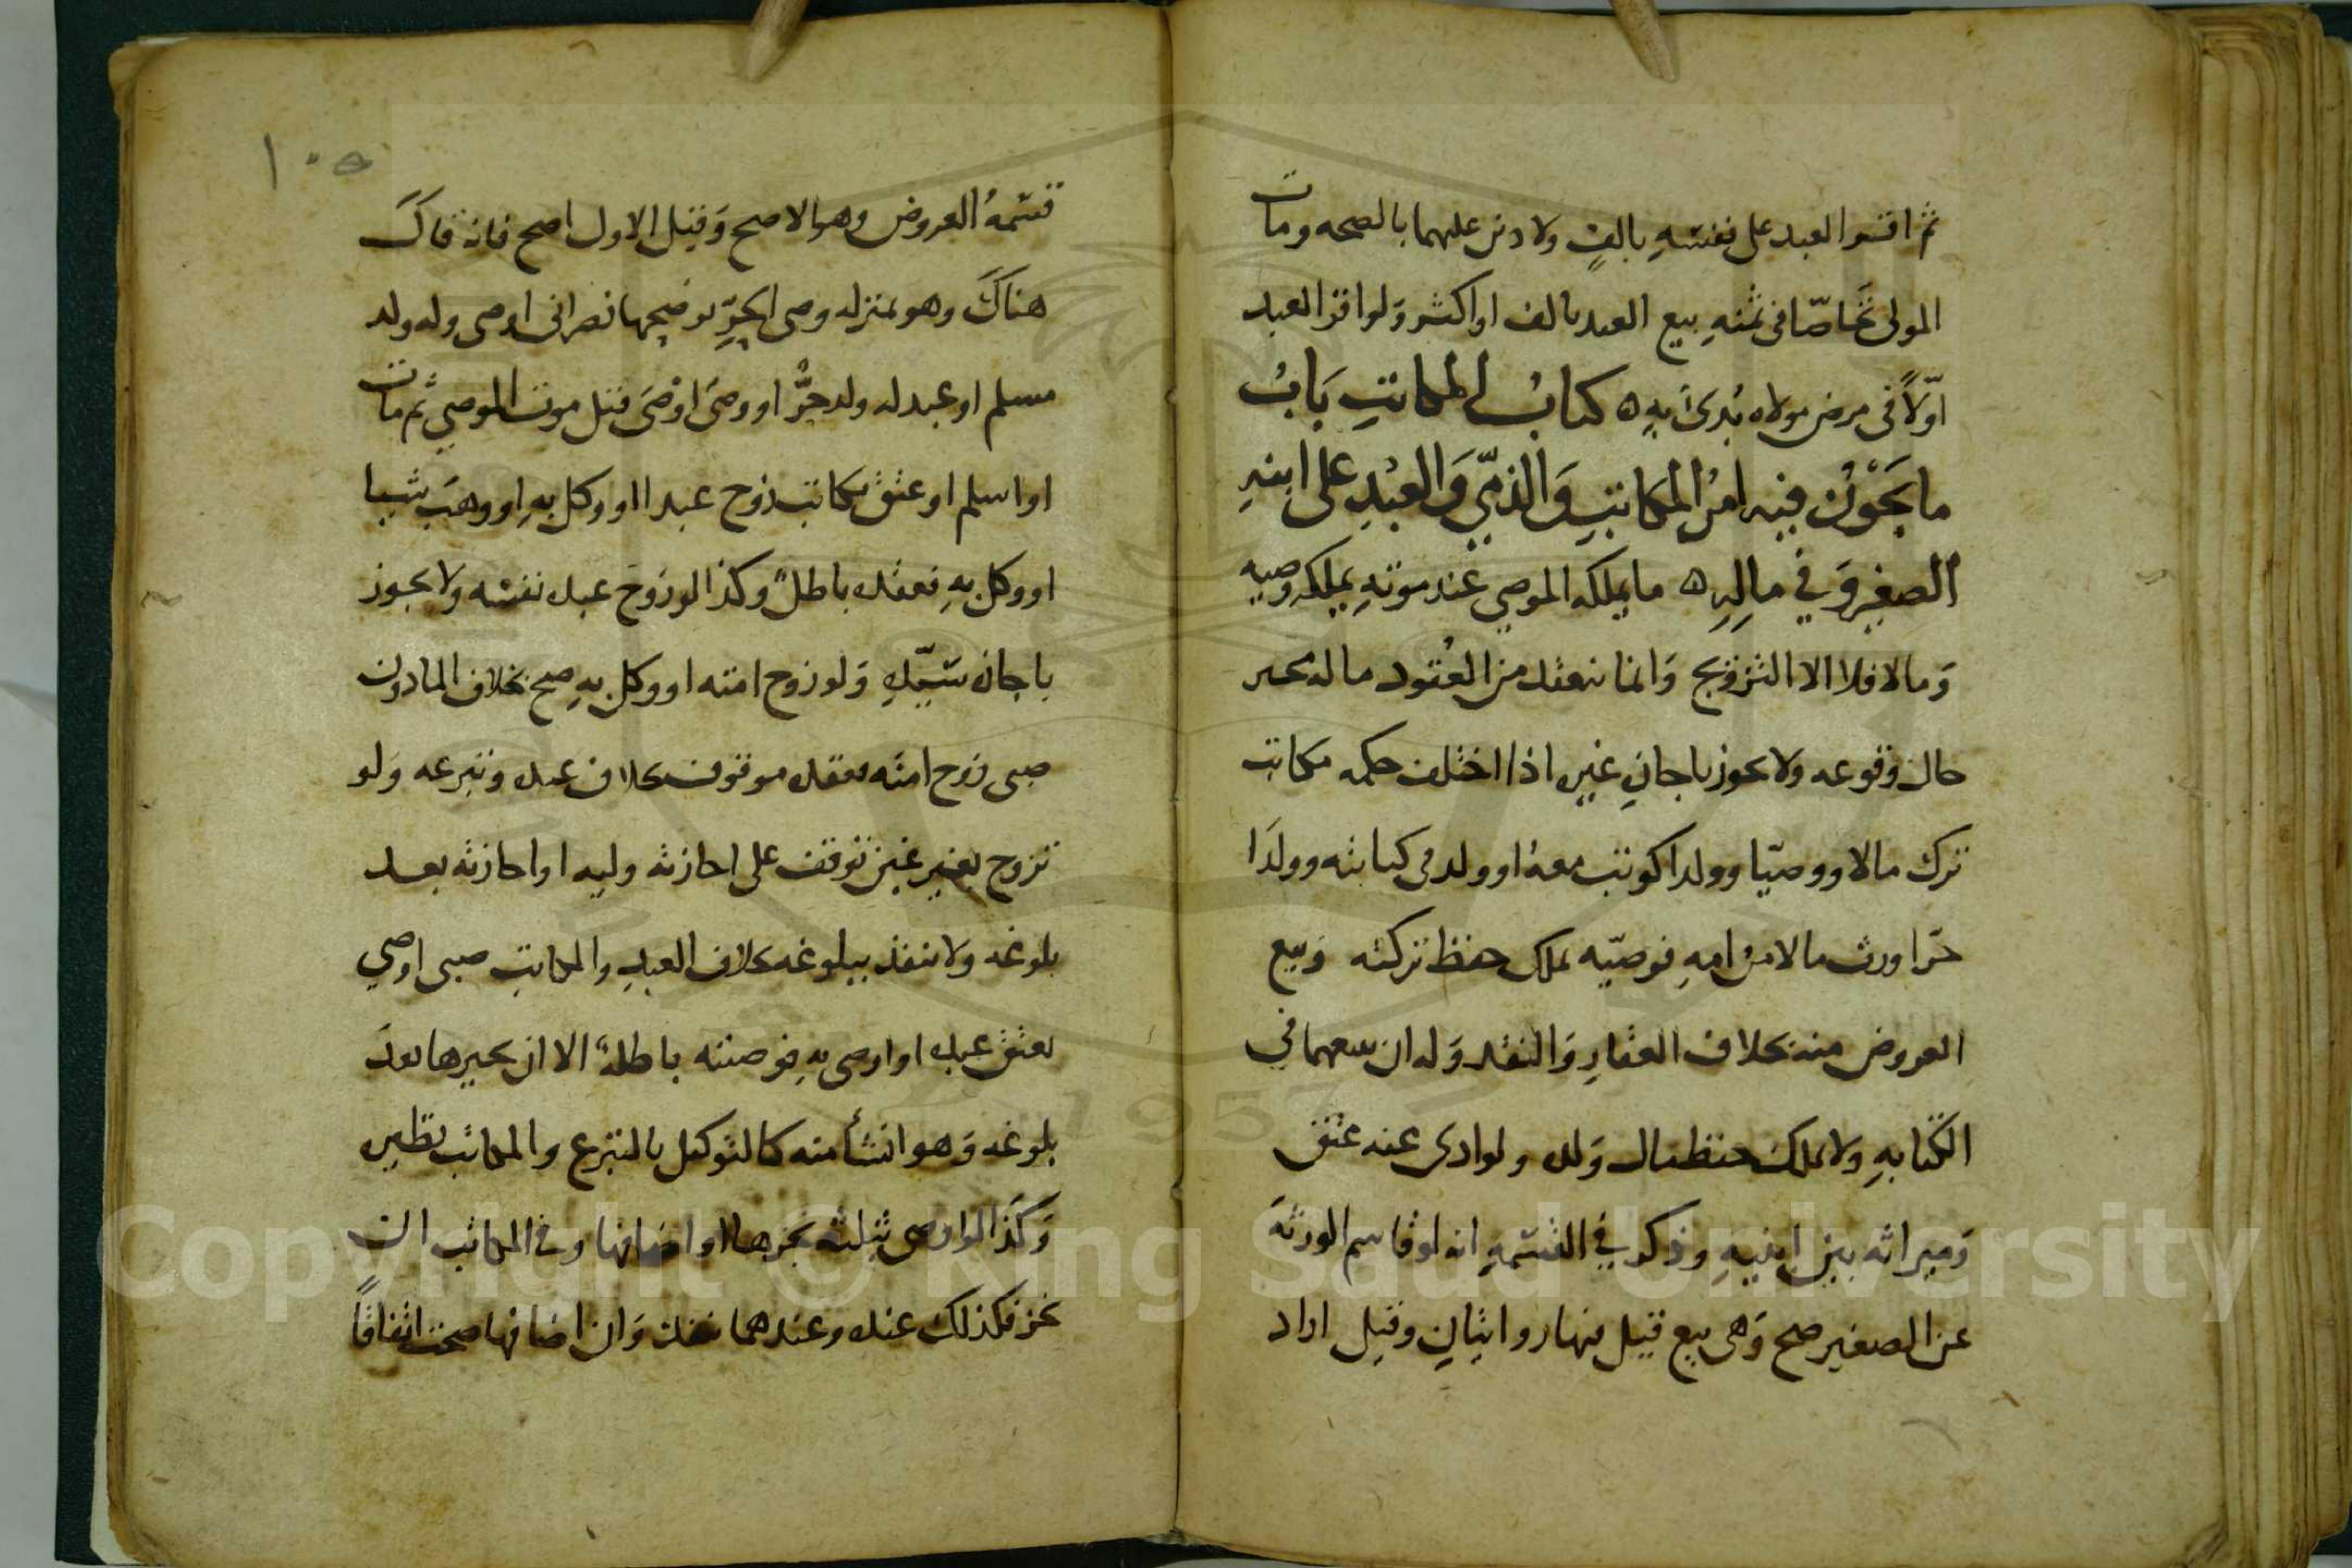 ثم اقر العبد على نفسه بالف ولا دين عليهما بالصحه ومات
المولى تحاصا في ثمنه بيع العبد بالف او اكثر ولو اقر العبد
اولا في مرض مولاه بدئ به ه كتاب المكاتب باب
ما يجوز فيه امر المكاتب والذمي والعبد على ابنه
الصغير وفي ماله ه ما يملكه الموصي عند موته يملكه وصيه
وما لا فلا الا التزويج وانما ينعقد من العقود ما له مجيز
حال وقوعه ولا يجوز باجازة غيره اذا اختلف حكمه مكاتب
ترك مالا ووصيا وولدا كوتب معه او ولد في كتابته وولدا
حرا ورث مالا من امه فوصيه يملك حفظ تركته وبيع
العروض منه بخلاف العقار والنقد وله ان يبيعهما في
الكتابه ولا يملك حفظ مال ولده ولو ادى عنه عتق
وميراثه بين ابنيه وذكر في القسمه انه لو قاسم الورثة
عن الصغير صح وهي بيع قيل فيها روايتان وقيل اراد
١٠٥
قسمة العروض وهو الاصح وقيل الاول اصح فانه قال
هناك وهو بمنزله وصي الحر يوضحها نصراني اوصى وله ولد
مسلم او عبد له ولد حر او وصى اوصى قبل موت الموصي ثم مات
او اسلم او عتق مكاتب زوج عبدا او وكل به او وهب شيا
او وكل به فعقده باطل وكذا لو زوج عبده نفسه ولا يجوز
باجازة سيده ولو زوج امته او وكل به صح بخلاف الماذون
صبي زوج امته فعقده موقوف بخلاف عبده وتبرعه ولو
تزوج بغير غبن توقف على اجازته وليه او اجازته بعد
بلوغه ولا ينفذ ببلوغه بخلاف العبد والمكاتب صبي اوصي
بعتق عبده او اوصى به فوصيته باطلة الا ان يجيزها بعد
بلوغه وهو انشأ منه كالتوكيل بالتبرع والمكاتب نظيره
وكذا لو اوصى بثلثه نجزها او اضافها وفي المكاتب ان
نجز فكذلك عنده وعندهما نفذت وان اضافها صحت اتفاقا
Copyright © King Saud University
1957